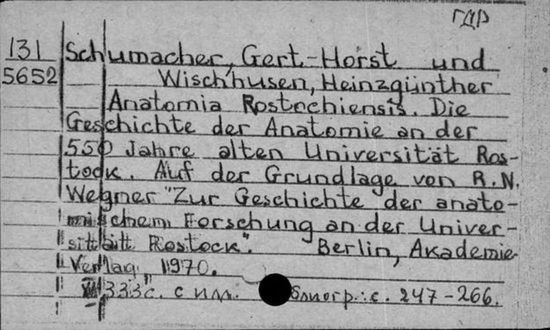 ГДР
131
5652
Schumacher, Gert-Horst und
Wischhusen, Heinzgünther
Anatomia Rostochiensis. Die
Geschichte der Anatomie an der
550 Jahre alten Universität Ros-
tock. Auf der Grundlage von R.N.
Wegner "Zur Geschichte der anato-
mischem Forschung an der Univer-
sität Rostock". Berlin, Akademie-
Verlag, 1970.
333 с. с илл. Библиогр.: с. 247-266.